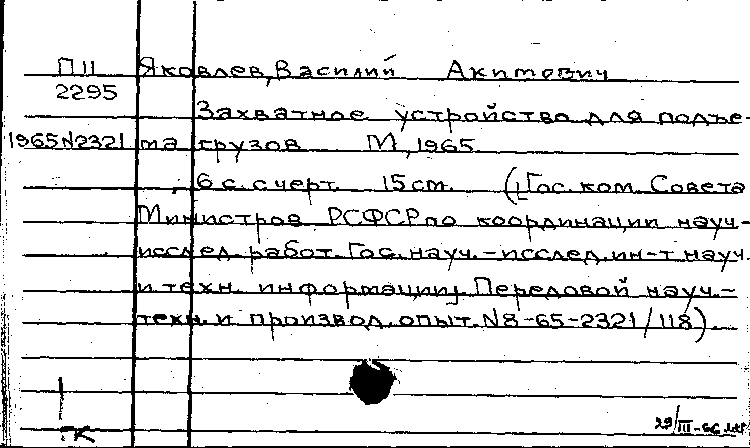 П11 Яковлев, Василий Акимович
2295
Захватное устройство для подъе-
1965N2321 ма грузов М, 1965
6 с. с черт. 15 см. (Гос. ком. Совета
Министров РСФСР по координации науч-
исслед. работ. Гос. науч.-исслед. ин-т науч.
и техн. информации. Передовой науч.-
техн. и производ. опыт. N8-65-2321/118).
ГК
29/III-66